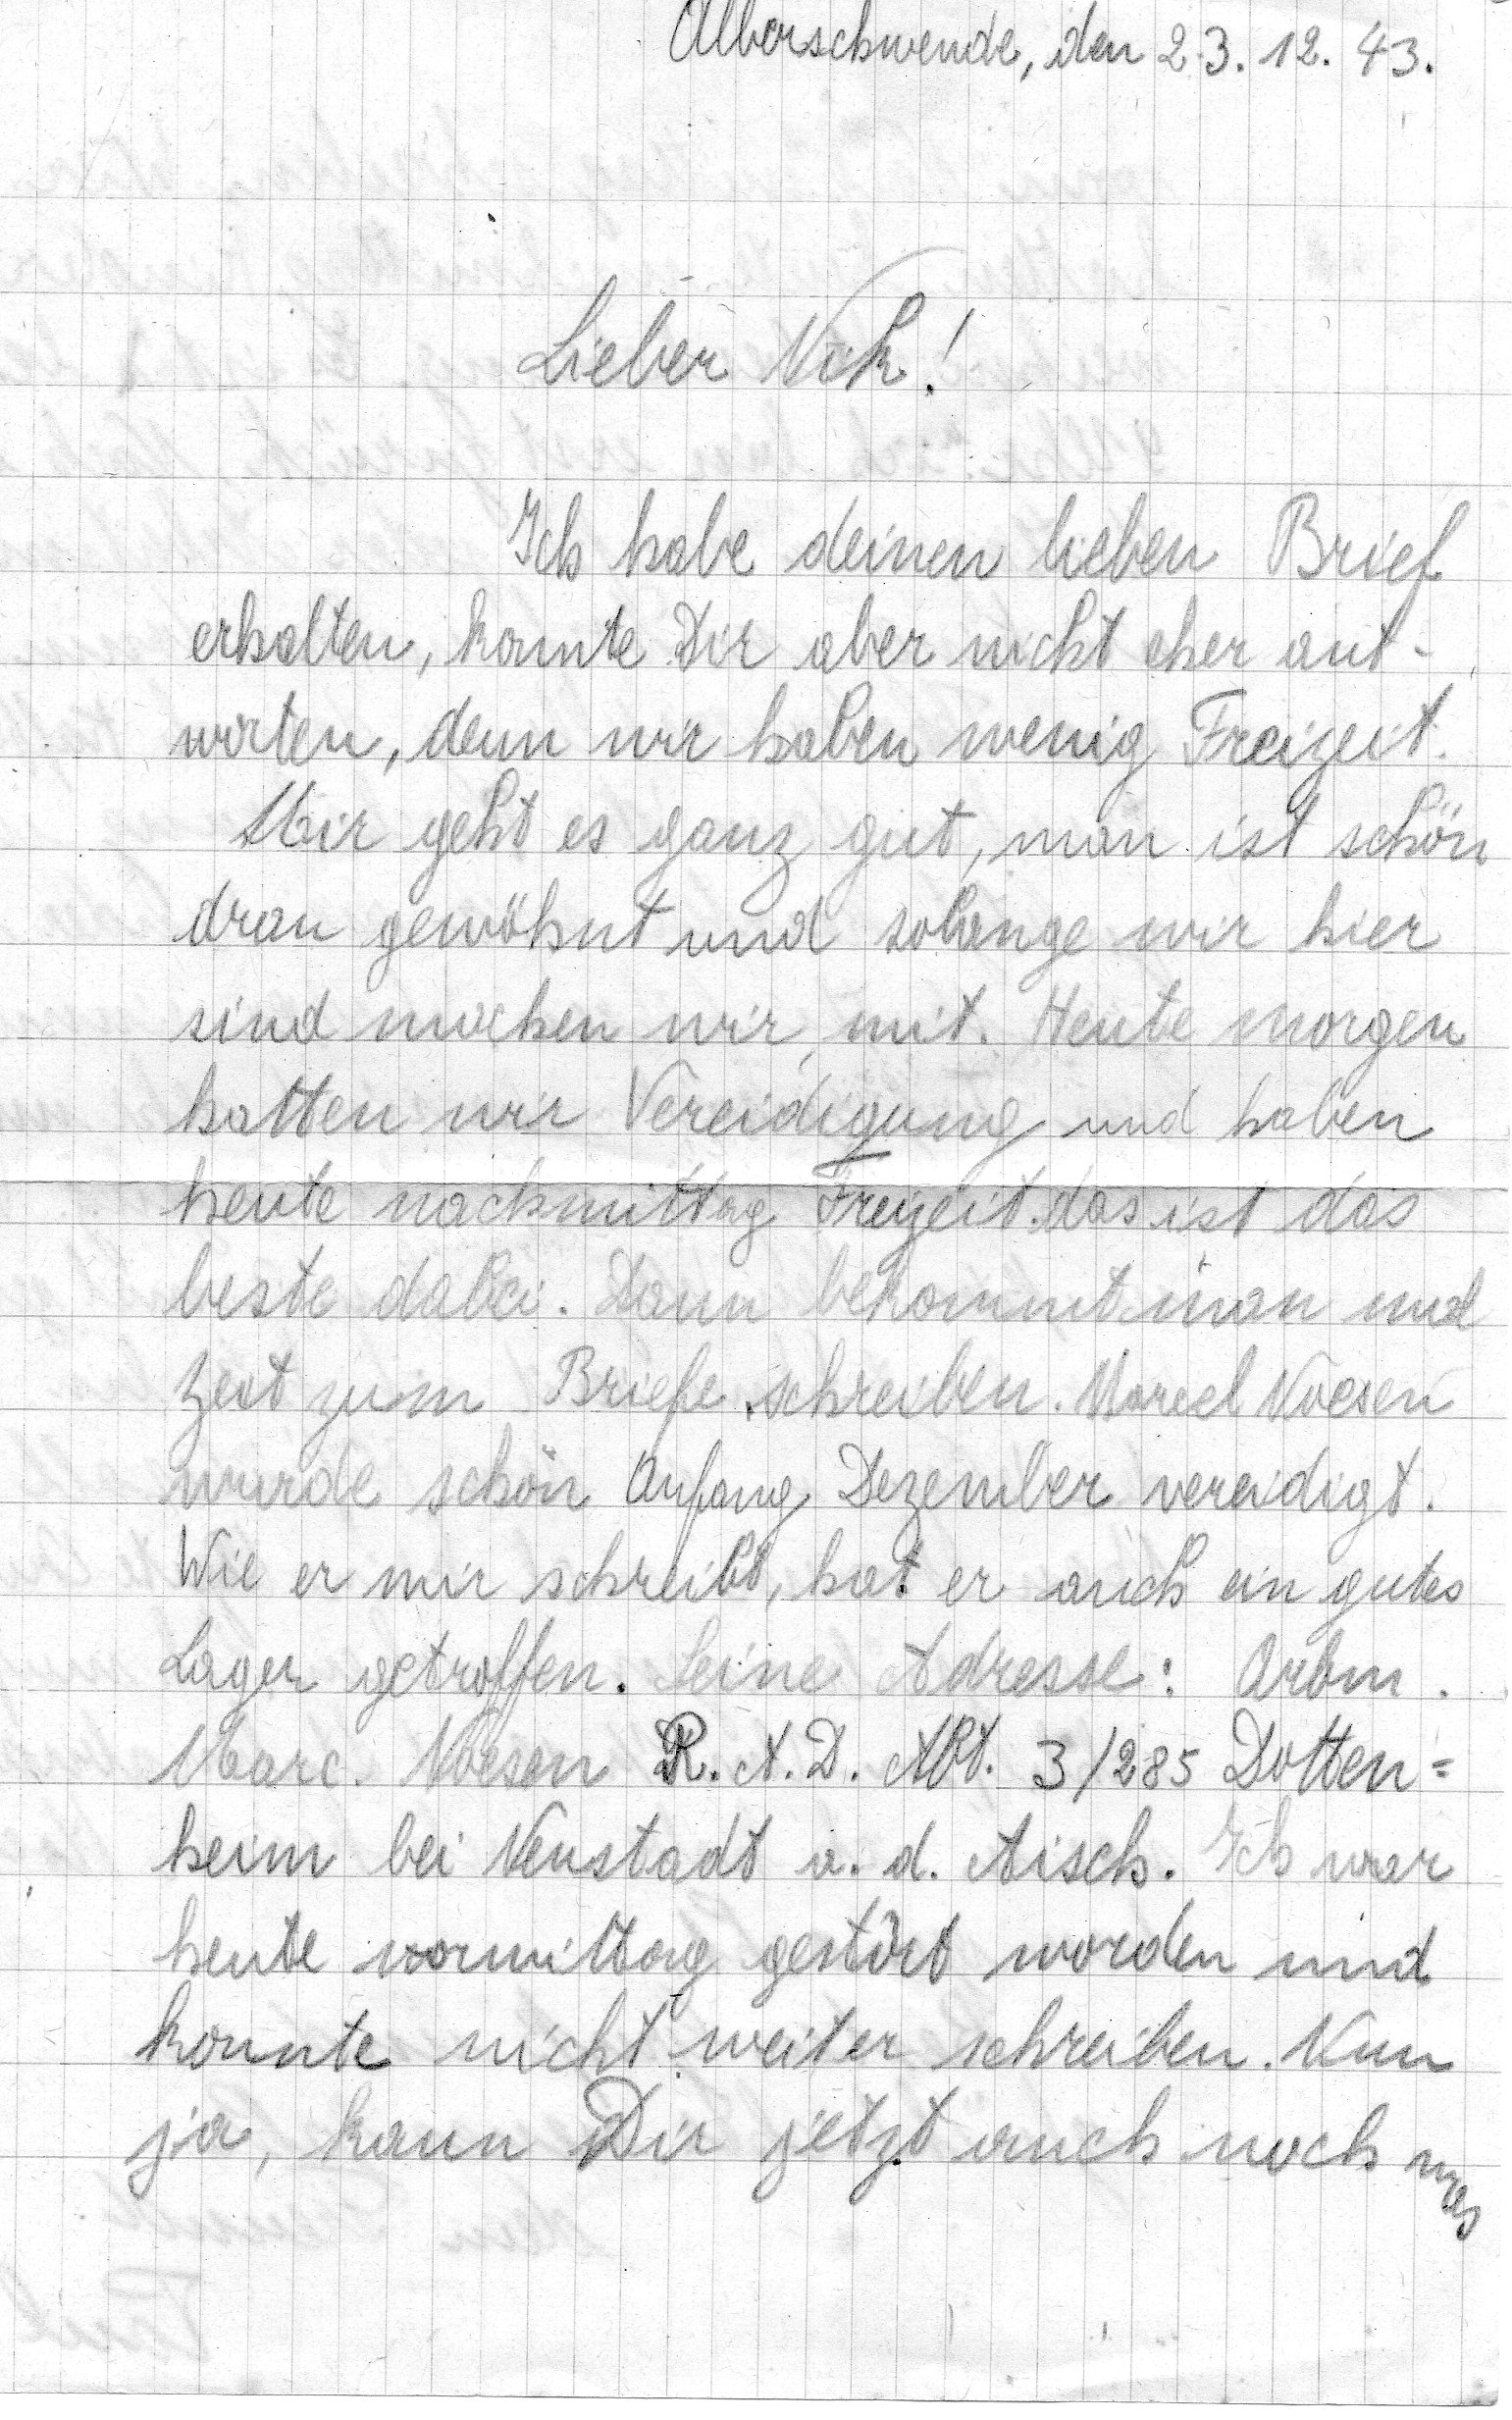 Alberschwende, den 23. 12. 43.
Lieber Nik!
Ich habe deinen lieben Brief
erhalten, konnte Dir aber nicht eher ant-
wirten, denn wir haben wenig Freizeit.
Mir geht es ganz gut, man ist schön
dran gewöhnt und solange wir hier
sind machen wir mit. Heute morgen
hatten wir Vereidigung und haben
heute nachmittag Freizeit. das ist das
beste dabei. Dann bekommt man und
Zeit zum Briefe schreiben. Marcel Noesen
wurde schön Anfang Dezember vereidigt.
Wie er mir schreibt, hat er auch ein gutes
Lager getroffen. Seine Adresse: Arbm.
Marc. Noesen R. A. D. Abt. 3/285 Dotten=
heim bei Neustadt a. d. Aisch. Ich war
heute vormittag gestört worden und
konnte nicht weiter schreiben. Nun
ja, kann Dir jetzt auch noch was